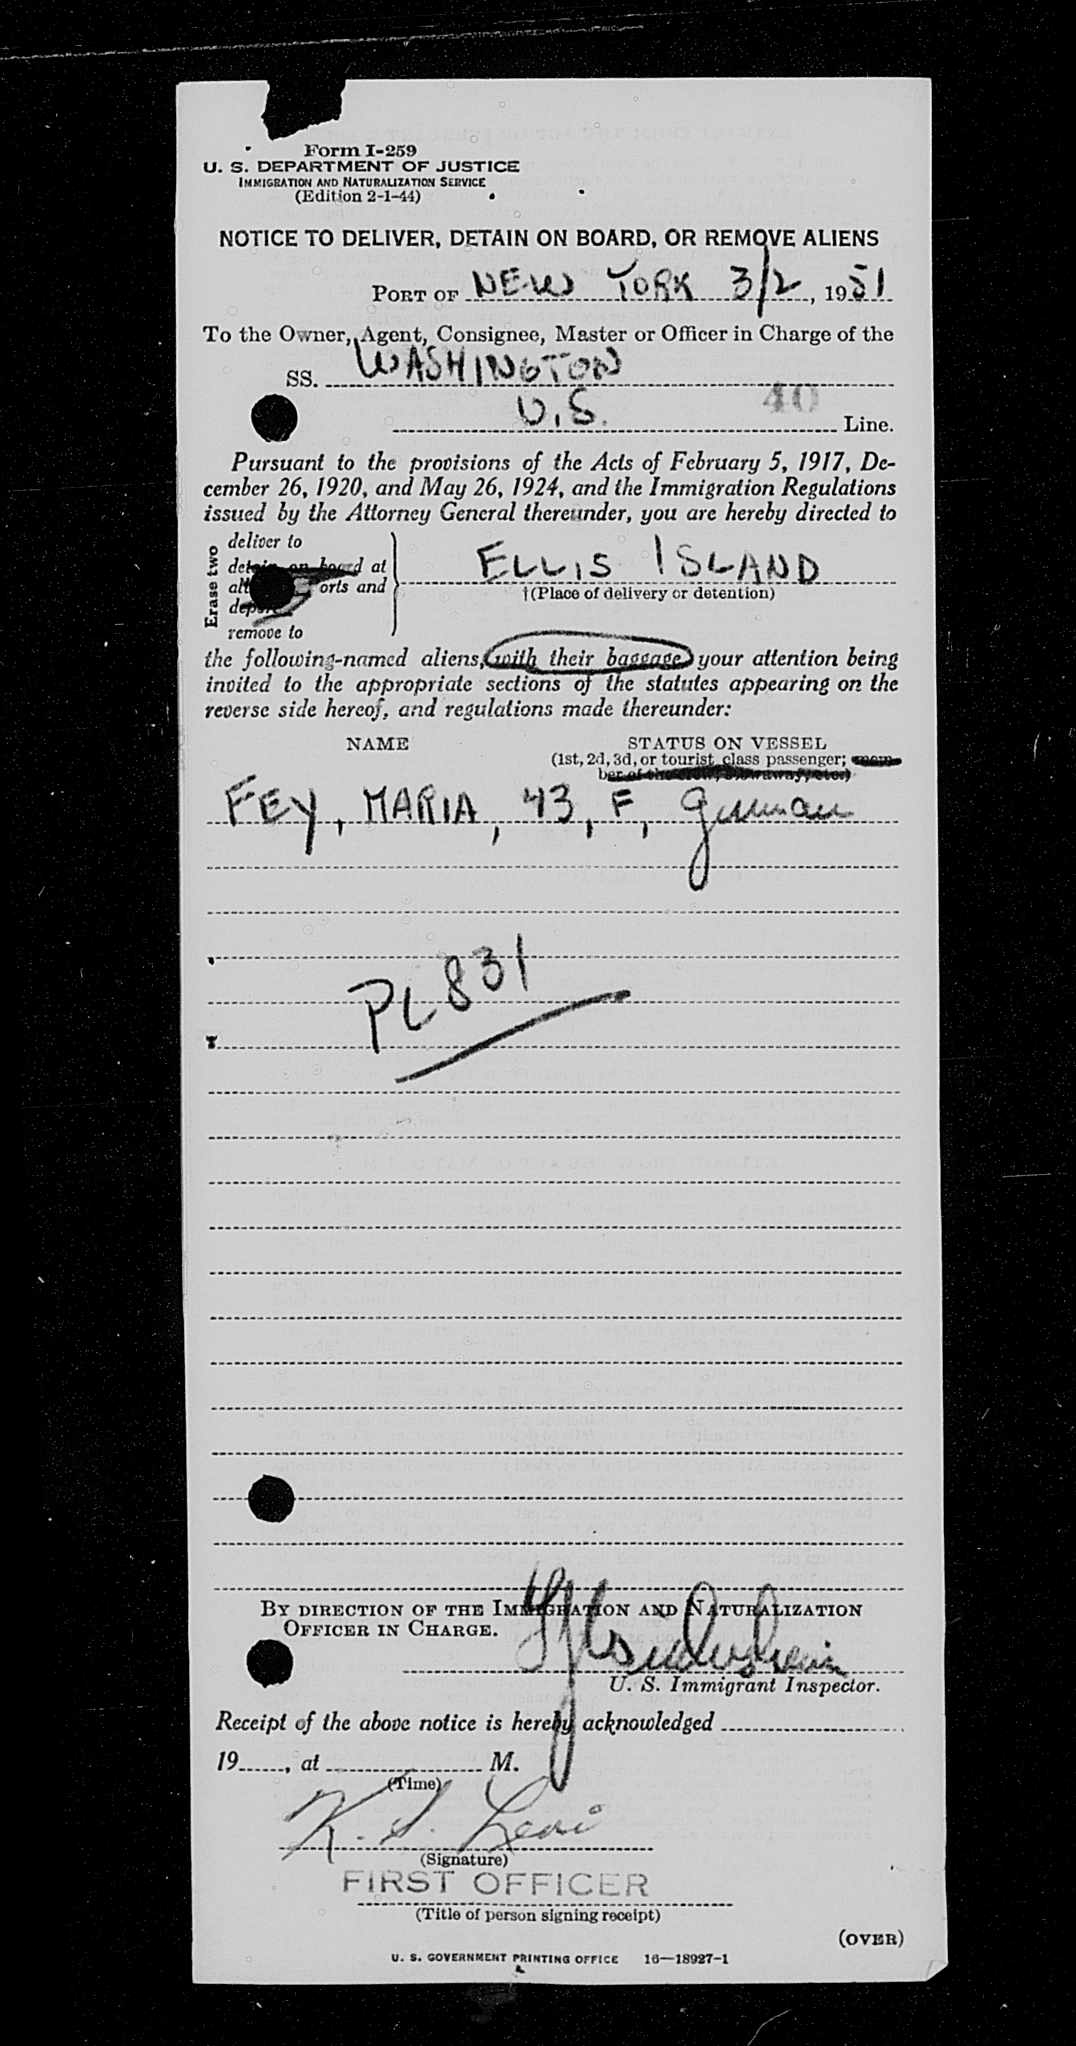 Form I-259
U. S. DEPARTMENT OF JUSTICE
IMMIGRATION AND NATURALIZATION SERVICE
(Edition 2-1-44)
NOTICE TO DELIVER, DETAIN ON BOARD, OR REMOVE ALIENS
PORT OF NEW YORK 3/2, 1951
To the Owner, Agent, Consignee, Master or Officer in Charge of the
SS. WASHINGTON
U.S. 40 Line.
Pursuant to the provisions of the Acts of February 5, 1917, De-
cember 26, 1920, and May 26, 1924, and the Immigration Regulations
issued by the Attorney General thereunder, you are hereby directed to
Erase two
deliver to
detain on board at
all orts and
deport
remove to
ELLIS ISLAND
†(Place of delivery or detention)
the following-named aliens, with their baggage, your attention being
invited to the appropriate sections of the statutes appearing on the
reverse side hereof, and regulations made thereunder:
NAME STATUS ON VESSEL
(1st, 2d, 3d, or tourist class passenger; mem-
ber of the crew, stowaway, etc.)
FEY, MARIA, 43, F, German
PL 831
BY DIRECTION OF THE IMMIGRATION AND NATURALIZATION
OFFICER IN CHARGE.
U. S. Immigrant Inspector.
Receipt of the above notice is hereby acknowledged
19, at M.
(Time)
K. S. Levi
(Signature)
FIRST OFFICER
(Title of person signing receipt)
(OVER)
U. S. GOVERNMENT PRINTING OFFICE 16—18927-1